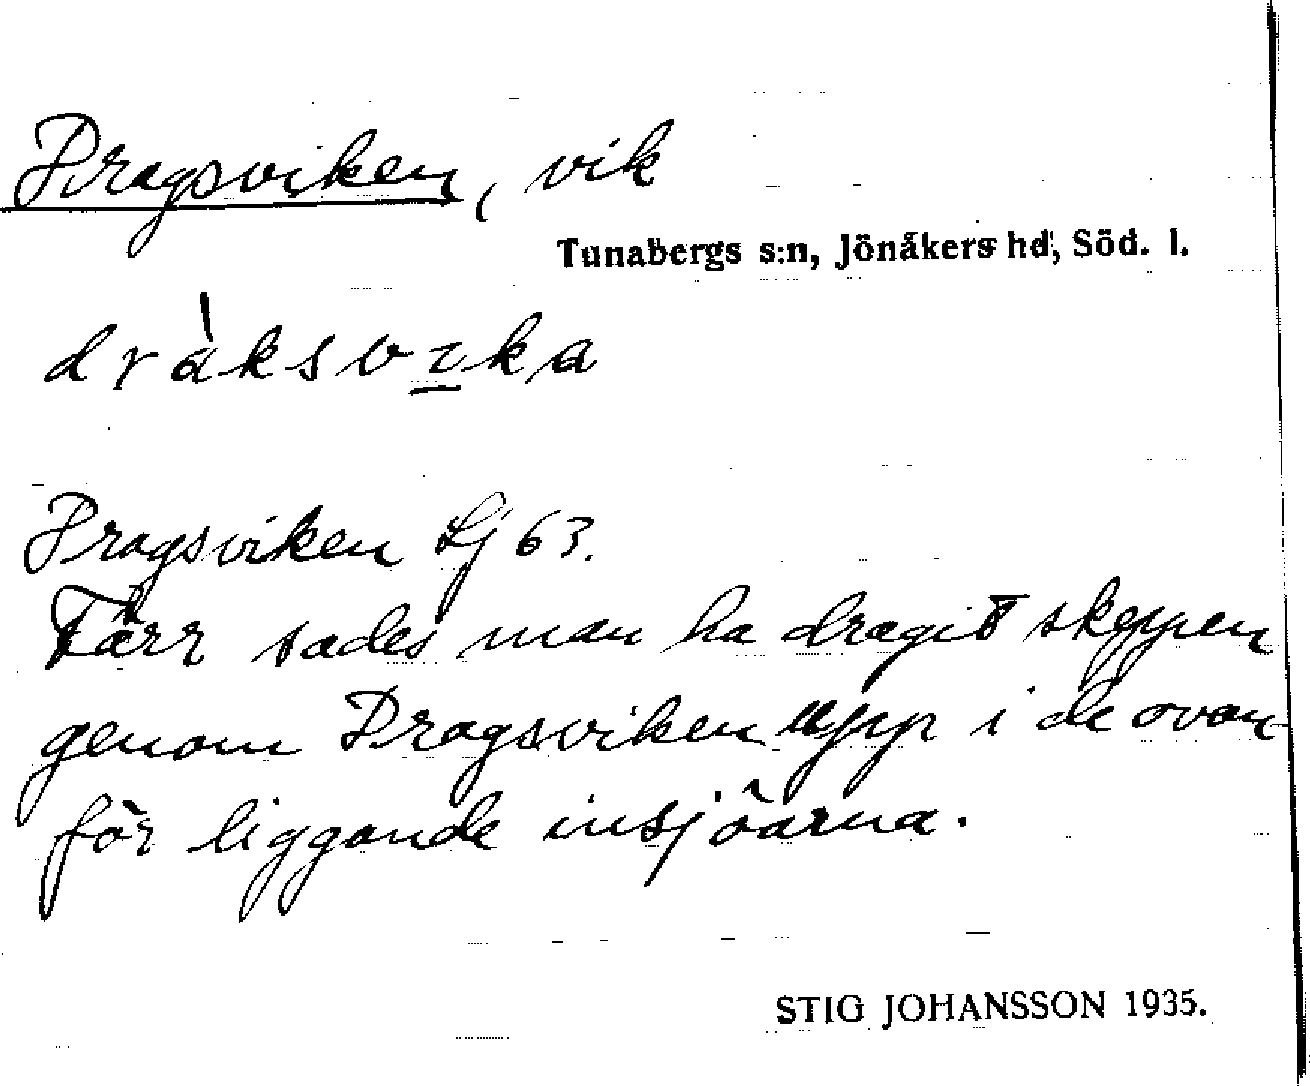 Dragsviken, vik
Tunabergs s:n, Jönåkers hd, Söd. l.
dràksvıka
Dragsviken Lj 63.
Förr sades man ha dragit skeppen
genom Dragsviken upp i de ovan-
för liggande insjöarna.
STIG JOHANSSON 1935.